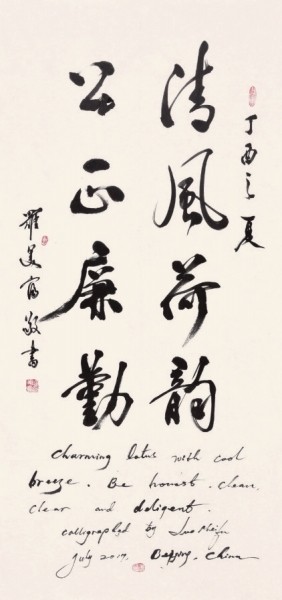 丁酉之夏
清風荷韵
公正廉勤
羅美富敬書
charming lotus with cool
breeze. Be honest. clean.
clear and deligent.
calligraphed by Luo Meifu
July 2017. Beijing. China